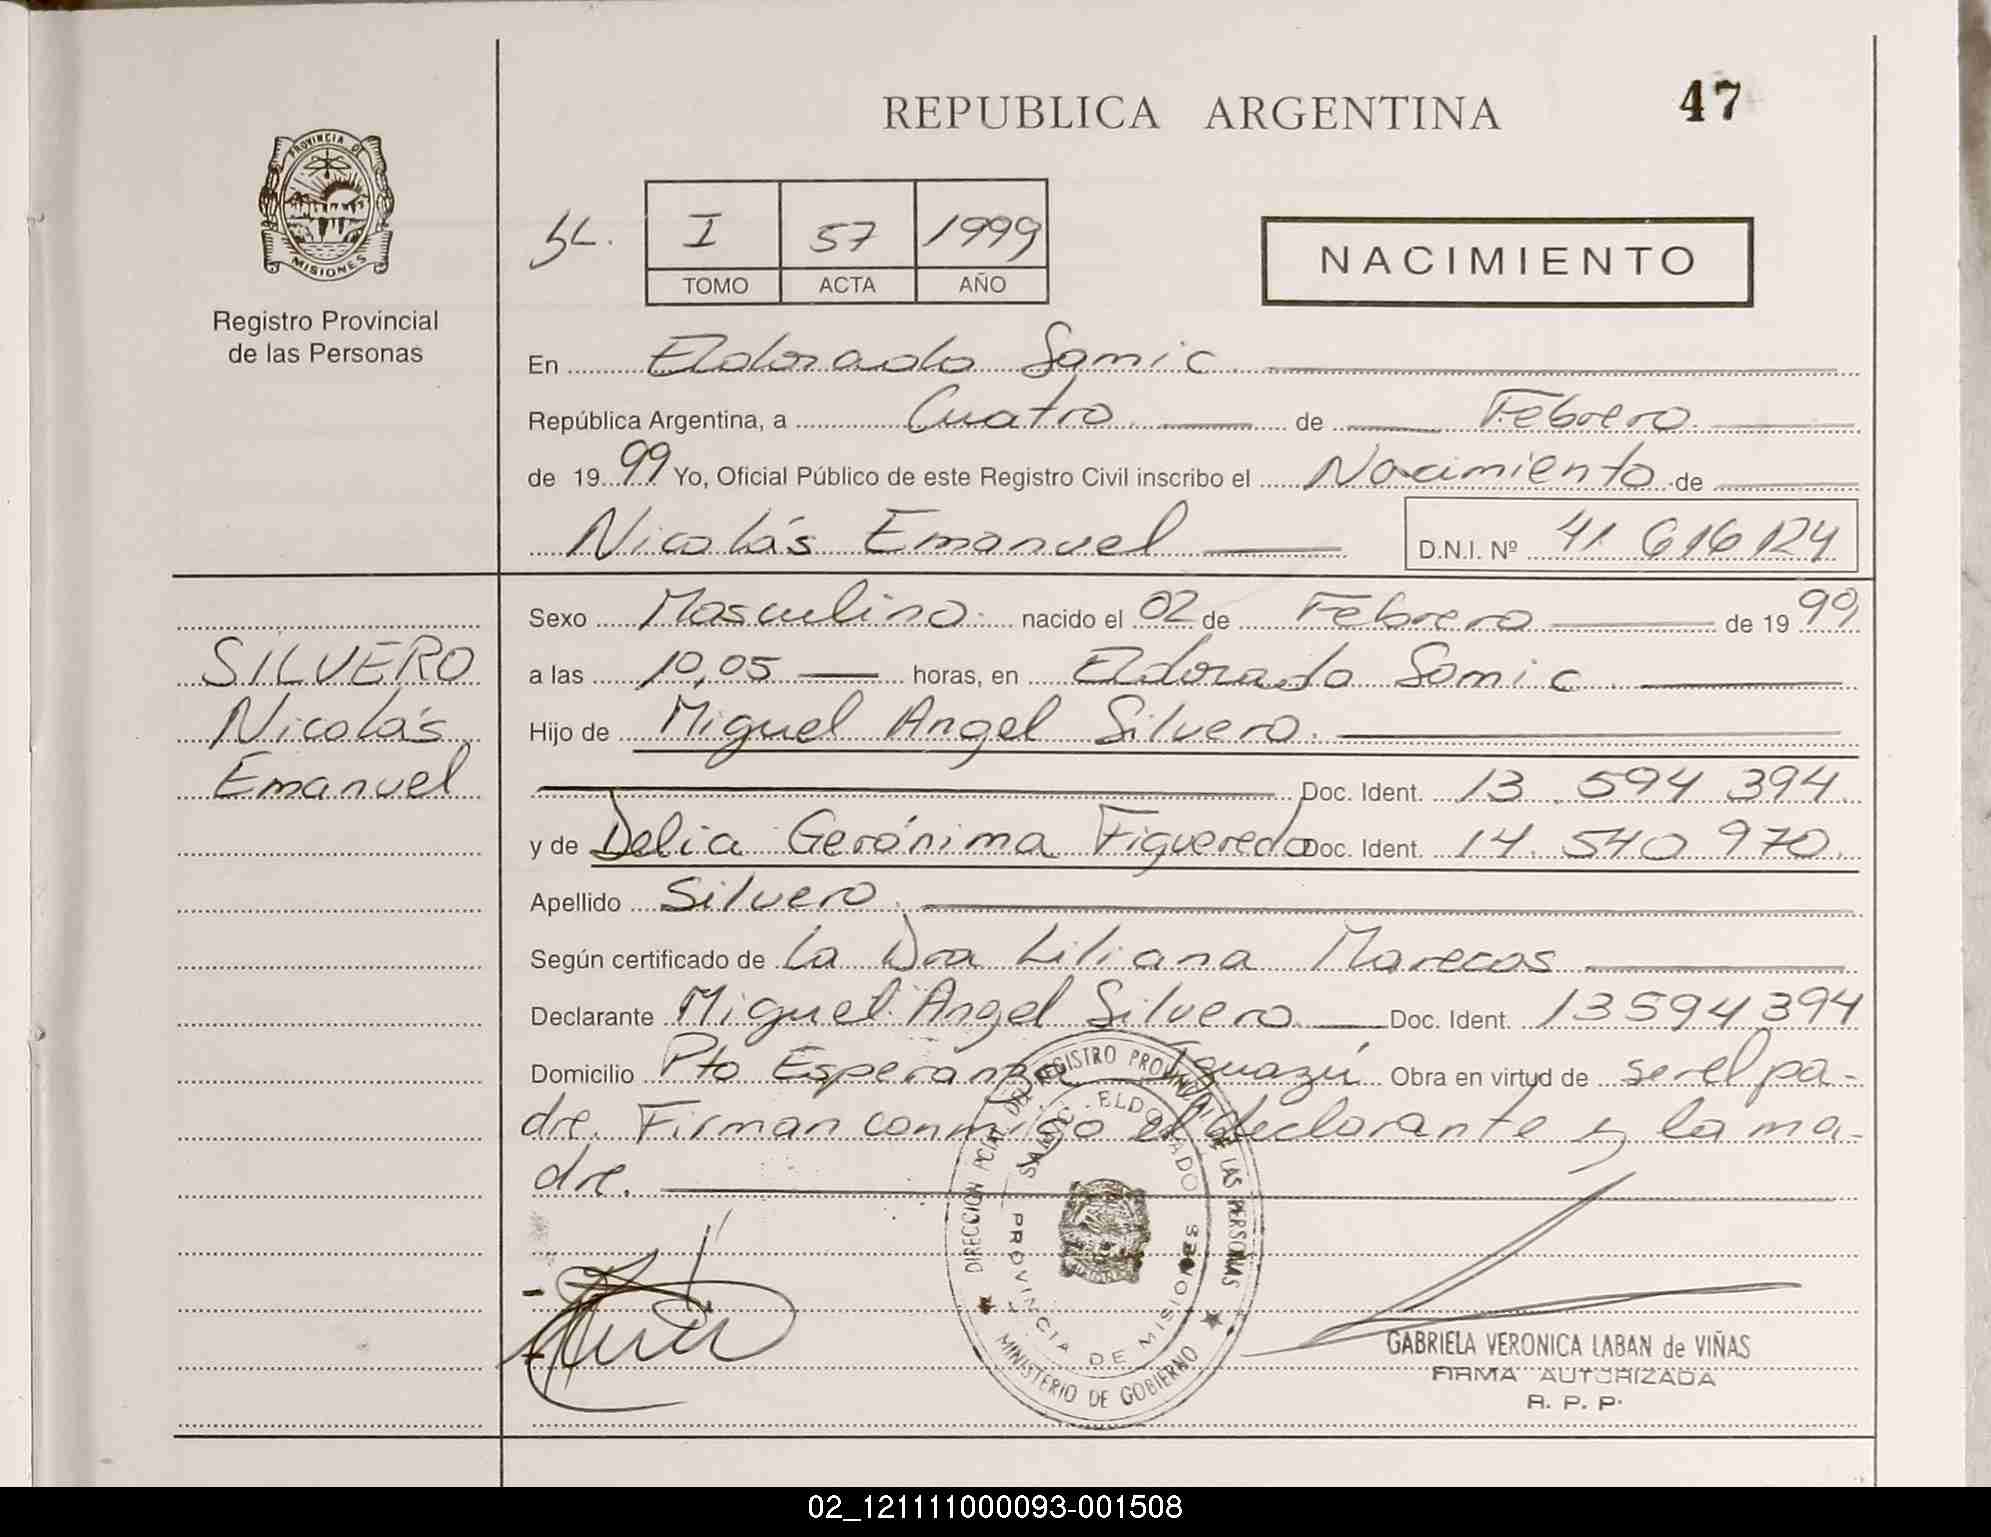 REPUBLICA ARGENTINA
47
PROVINCIA DE
MISIONES
Registro Provincial
de las Personas
I 57 1999
TOMO ACTA AÑO
NACIMIENTO
En Eldorado Samic
República Argentina, a Cuatro de Febrero
de 1999 Yo, Oficial Público de este Registro Civil inscribo el Nacimiento de
Nicolás Emanuel D.N.I. Nº 41 616 124
SILVERO
Nicolás
Emanuel
Sexo Masculino. nacido el 02 de Febrero de 1999
a las 10,05 horas, en Eldorado Samic
Hijo de Miguel Angel Silvero.
Doc. Ident. 13.594 394.
y de Delia Gerónima Figueredo Doc. Ident. 14.540 970.
Apellido Silvero.
Según certificado de La Dra Liliana Marecos
Declarante Miguel Angel Silvero Doc. Ident. 13594394
Domicilio Pto Esperanza Iguazú Obra en virtud de ser el pa-
dre. Firman conmigo el declarante y la ma-
dre.
DIRECCION PCIAL DEL REGISTRO PROVINCIAL DE LAS PERSONAS
MINISTERIO DE GOBIERNO
SAMIC - ELDORADO
PROVINCIA DE MISIONES
GABRIELA VERONICA LABAN de VIÑAS
FIRMA AUTORIZADA
R. P. P.
02_121111000093-001508